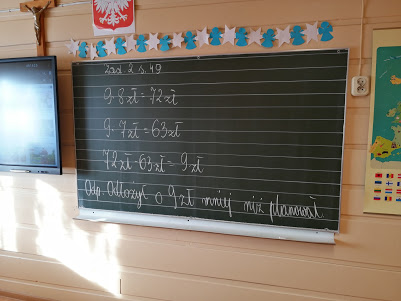 Zad 2 s. 49
9 · 8 zł = 72 zł
9 · 7 zł = 63 zł
72 zł - 63 zł = 9 zł
Odp. Odłożył o 9 zł mniej niż planował.